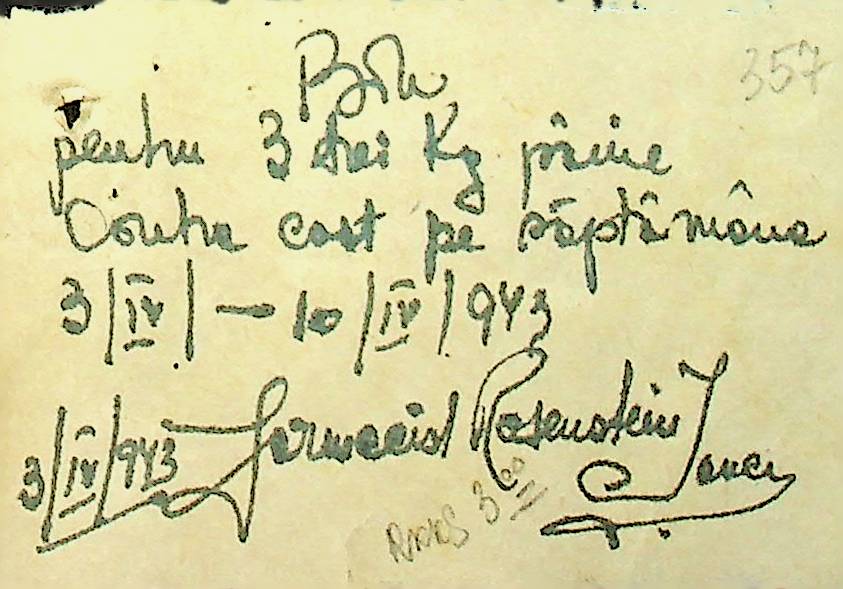 Bon
357
pentru 3 trei Kg pâine
Contra cost pe săptămâna
3/IV/ — 10/IV/943
3/IV/943 Farmacist Rosenstein Iancu
RKKS 3⁰⁰